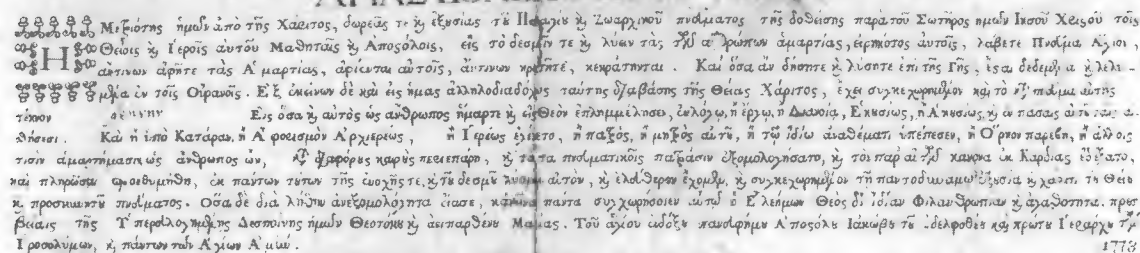 Η Μετριότης ἡμῶν ἀπὸ τῆς Χάριτος, δωρεᾶς τε κ̀ ἐξυσίας τῦ Παναγίυ κ̀ Ζωαρχικοῦ πνεύματος τῆς δοθείσης παρὰ τοῦ Σωτῆρος ἡμῶν Ιησοῦ Χριςοῦ τοῖς
Θείοις κ̀ Γεροῖς αὐτοῦ Μαθηταῖς κ̀ Αποςόλοις, εἰς τὸ δεσμεῖν τε κ̀ λύειν τὰς τῶν ἀνθρώπων ἁμαρτίας, εἰρηκότος αὐτοῖς, λάβετε Πνεῦμα Αγιον,
ἄντινων ἀφῆτε τὰς Α μαρτίας, ἀφίενται αὐτοῖς, ἄντινων κρατῆτε, κεκράτηνται. Καὶ ὅσα ἄν δήσητε κ̀ λύσητε ἐπὶ τῆς Γῆς, ἔςαι δεδεμένα κ̀ λελυ-
μένα ἐν τοῖς Οὐρανοῖς. Εξ ἐκείνων δὲ καὶ εἰς ἡμᾶς ἀλληλοδιαδόχως ταύτης διαβάσης τῆς Θείας Χάριτος, ἔχει συγκεχωρημένον καὶ τὸ πνευμα αὐτῆς
τέκνον Εἰς ὅσα κ̀ αὐτὸς ὡς ἄνθρωπος ἥμαρτε κ̀ εἰς Θεὸν ἐπλημμέλησεν, ἐν λόγῳ, ἢ ἔργῳ, ἢ Διανοίᾳ, Εκυσίως, ἢ Ακυσίως, κ̀ ἐν πάσαις αὐτῦ ταῖς αἰ-
σθήσεσι. Καὶ ἢ ὑπὸ Κατάραν, ἢ Α φορισμὸν Αρχιερέως, ἢ Γερέως ἐγένετο, ἢ παξὸς, ἢ μηξὸς αὐτῦ, ἢ τῷ ἰδίῳ ἀναθέματι ὑπέπεσεν, ἢ Ο ρκον παρέβη, ἢ ἄλλοις
τισὶν ἁμαρτήμασιν ὡς ἄνθρωπος ὢν, διαφόρυς καιρὺς περιεπάρη, κ̀ ταῦτα πνευματικοῖς παξάσιν ἐξομολογήσατο, κ̀ τὸν παρ' αὐτῶν κανόνα ἐκ Καρδίας ἐδέξατο,
καὶ πληρῶσαι προεθυμήθη, ἐκ πάντων τύτων τῆς ἐνοχῆς τε, κ̀ τῦ δεσμῦ λύομεν αὐτὸν, κ̀ ἐλεύθερον ἔχομεν, κ̀ συγκεχωρημένον τῇ παντοδυνάμῳ ἐξυσίᾳ κ̀ χάριτι τῦ Θείυ
κ̀ προσκυνητῦ πνεύματος. Οσα δὲ διὰ λήθην ἀνεξομολόγητα εἴασε, κᾀκεῖνα πάντα συγχωρήσοιεν αὐτῷ ὁ Ε λεήμων Θεὸς δι' ἰδίαν Φιλανθρωπίαν κ̀ ἀγαθότητα. πρεσ
βείαις τῆς Υ περευλογημένης Δεσποίνης ἡμῶν Θεοτόκυ κ̀ ἀειπαρθένυ Μαρίας. Τοῦ ἁγίυ ἐνδόξυ πανευφήμυ Αποςόλυ Ιακώβυ τῦ Αδελφοθέυ καὶ πρώτυ Γεράρχυ τῶν
Γεροσολύμων, κ̀ πάντων τῶν Α γίων Α μήν. 1773